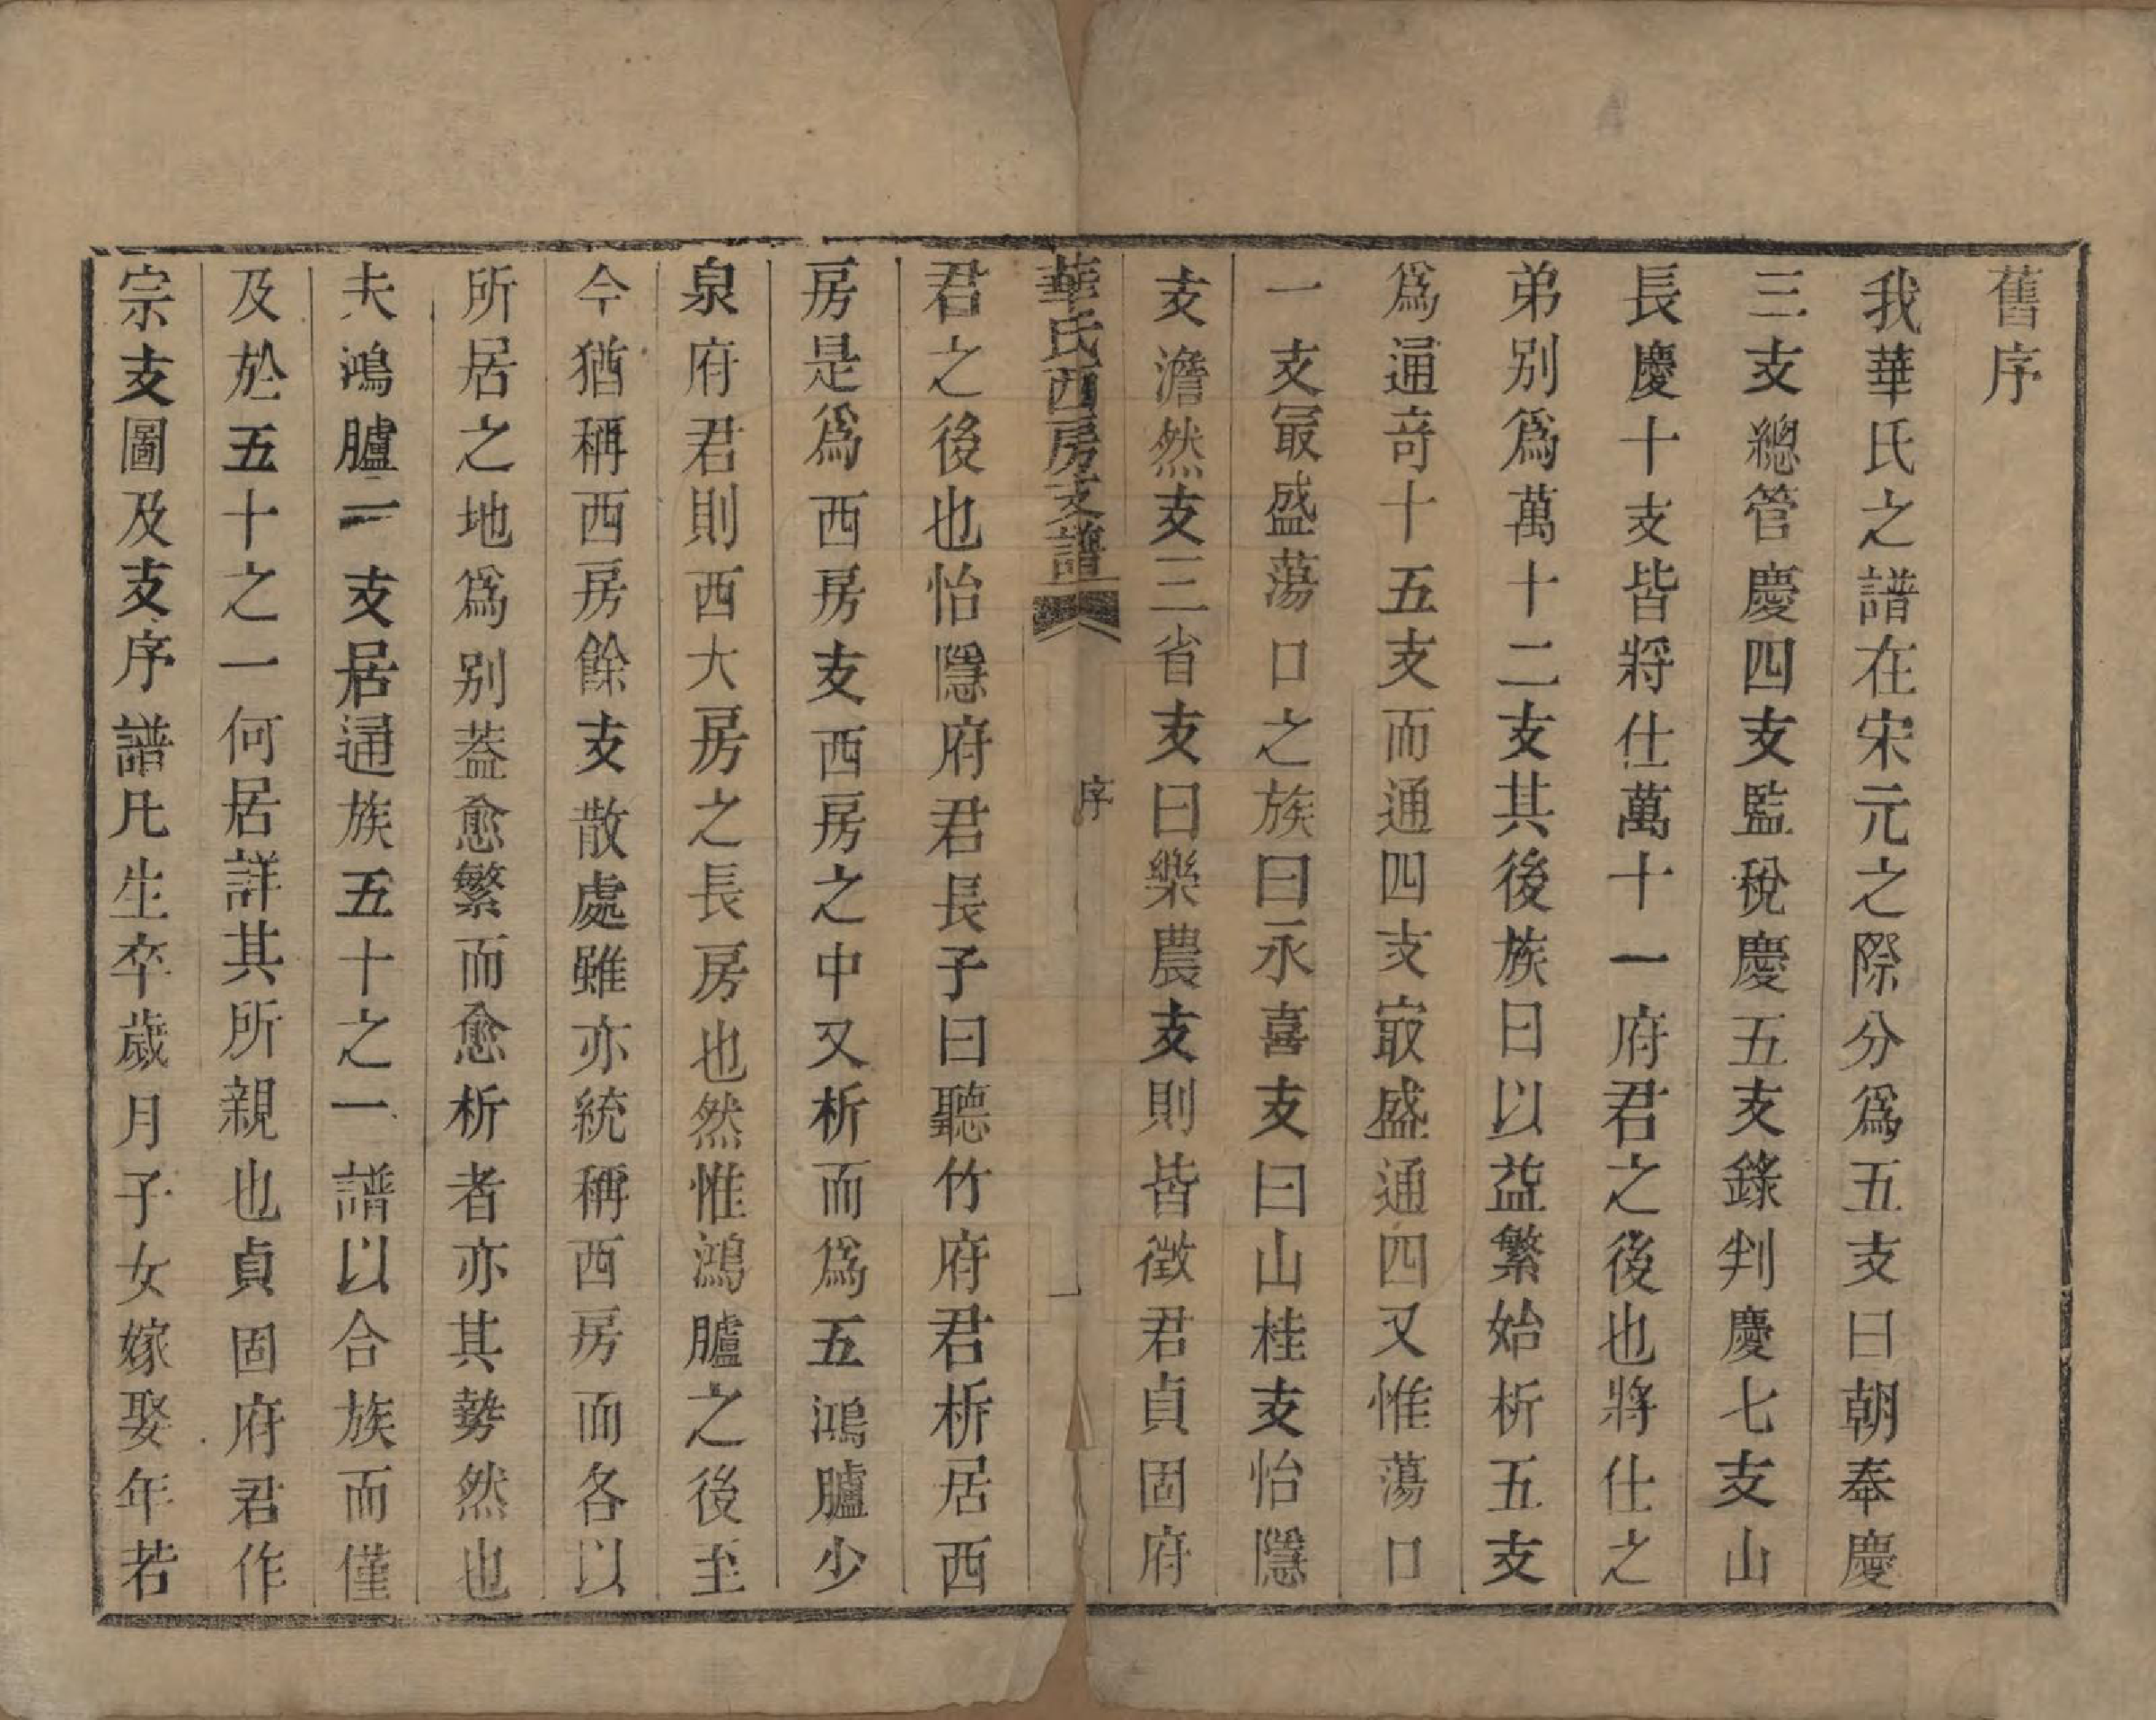 舊序
我華氏之譜在宋元之際分爲五支曰朝奉慶
三支總管慶四支監稅慶五支錄判慶七支山
長慶十支皆將仕萬十一府君之後也將仕之
弟别爲萬十二支其後族日以益繁始析五支
爲通竒十五支而通四支㝡盛通四又惟蕩口
一支㝡盛蕩口之族曰永喜支曰山桂支怡隱
支澹然支三省支曰樂農支則皆徵君貞固府
華氏西房支譜 序 一
君之後也怡隱府君長子曰聽竹府君析居西
房是爲西房支西房之中又析而爲五鴻臚少
泉府君則西大房之長房也然惟鴻臚之後至
今猶稱西房餘支散處雖亦統稱西房而各以
所居之地爲别葢愈繁而愈析者亦其勢然也
夫鴻臚一支居通族五十之一譜以合族而僅
及於五十之一何居詳其所親也貞固府君作
宗支圖及支序譜凡生卒歲月子女嫁娶年若